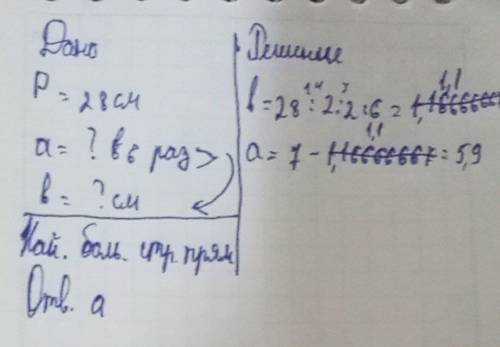 Дано
P = 28 см
a = ? в 6 раз >
b = ? см
Най. боль. стр. прям
Отв. a
Решение
14 7 1,1
b = 28 : 2 : 2 : 6 = 1,16666667
1,1
a = 7 - 1,16666667 = 5,9